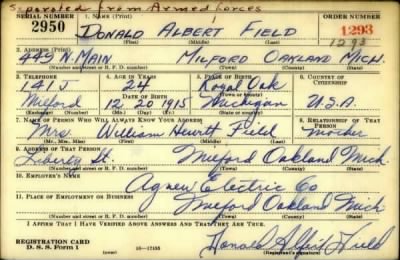 Separated from Armed Forces
SERIAL NUMBER 1. NAME (Print) ORDER NUMBER
2950 DONALD ALBERT FIELD 1293
(First) (Middle) (Last) 1293
2. ADDRESS (Print)
449 N. MAIN MILFORD OAKLAND MICH.
(Number and street or R. F. D. number) (Town) (County) (State)
3. TELEPHONE 4. AGE IN YEARS 5. PLACE OF BIRTH 6. COUNTRY OF CITIZENSHIP
141J 24 Royal Oak
DATE OF BIRTH (Town or county)
Milford 12 20 1915 Michigan U.S.A.
(Exchange) (Mo.) (Day) (Yr.) (State or country)
7. NAME OF PERSON WHO WILL ALWAYS KNOW YOUR ADDRESS 8. RELATIONSHIP OF THAT PERSON
Mrs. William Field mother
(Mr., Mrs., Miss) (First) (Middle) (Last)
9. ADDRESS OF THAT PERSON
Liberty St. Milford Oakland Mich.
(Number and street or R. F. D. number) (Town) (County) (State)
10. EMPLOYER'S NAME
Agnew Electric Co
11. PLACE OF EMPLOYMENT OR BUSINESS
Milford Oakland Mich
(Number and street or R. F. D. number) (Town) (County) (State)
I AFFIRM THAT I HAVE VERIFIED ABOVE ANSWERS AND THAT THEY ARE TRUE.
REGISTRATION CARD
D. S. S. Form 1 16—17105 Donald Albert Field
(Registrant's signature)